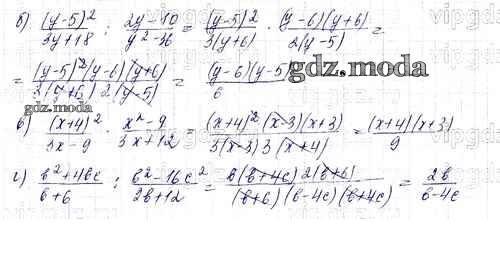 б) (y-5)²/3y+18 : 2y-10/y²-36 = (y-5)²/3(y+6) · (y-6)(y+6)/2(y-5) =
= (y-5)²(y-6)(y+6)/3(y+6) 2(y-5) = (y-6)(y-5)/6
gdz.moda
gdz.moda
в) (x+4)²/3x-9 · x²-9/3x+12 = (x+4)²(x-3)(x+3)/3(x-3) 3(x+4) = (x+4)(x+3)/9
г) b²+4bc/b+6 : b²-16c²/2b+12 = b(b+4c) 2(b+6)/(b+6)(b-4c)(b+4c) = 2b/b-4c